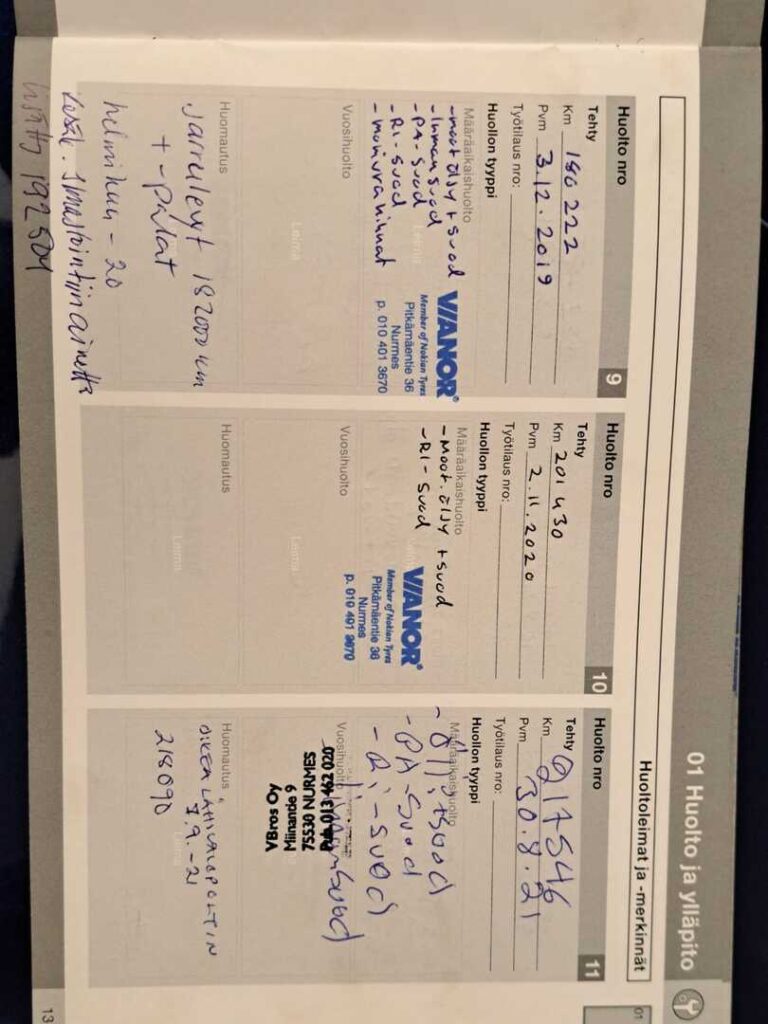 01 Huolto ja ylläpito
01
Huoltoleimat ja -merkinnät
Huolto nro
9
Tehty
Km 180 222
Pvm 3.12.2019
Työtilaus nro:
Huollon tyyppi
Määräaikaishuolto
- moot.öljy + suod
- Ilmansuod
- PA-suod
- RI-suod
VIANOR®
Member of Nokian Tyres
Pitkämäentie 36
Nurmes
p. 010 401 3670
Vuosihuolto
Leima
Huomautus
Jarrulevyt 182000 km
+ -palat
helmikuu -20
192 504
Huolto nro
10
Tehty
Km 201 430
Pvm 2.11.2020
Työtilaus nro:
Huollon tyyppi
Määräaikaishuolto
- Moot.öljy + suod
- RI-suod
VIANOR®
Member of Nokian Tyres
Pitkämäentie 36
Nurmes
p. 010 401 3670
Vuosihuolto
Leima
Huomautus
Leima
Huolto nro
11
Tehty
Km 217546
Pvm 30.8.21
Työtilaus nro:
Huollon tyyppi
Määräaikaishuolto
- Öljyt+suod
- PA-suod
- Ri-suod
Vuosihuolto
Ilmansuod
Puh. 013 462 020
75530 NURMES
VBros Oy
Huomautus
OIKEA LÄHIVALOPOLTIN
7.9.-21
218090
Leima
13